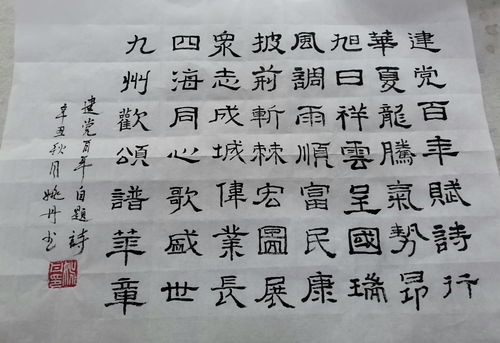 建党百年賦詩行
華夏龍騰氣勢昂
旭日祥雲呈國瑞
風調雨順富民康
披荊斬棘宏圖展
衆志成城偉業長
四海同心歌盛世
九州歡頌譜華章
建党百年自題詩
辛丑秋月姚丹书